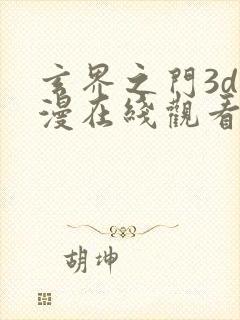 玄界之門3d
漫在綫觀看
胡坤